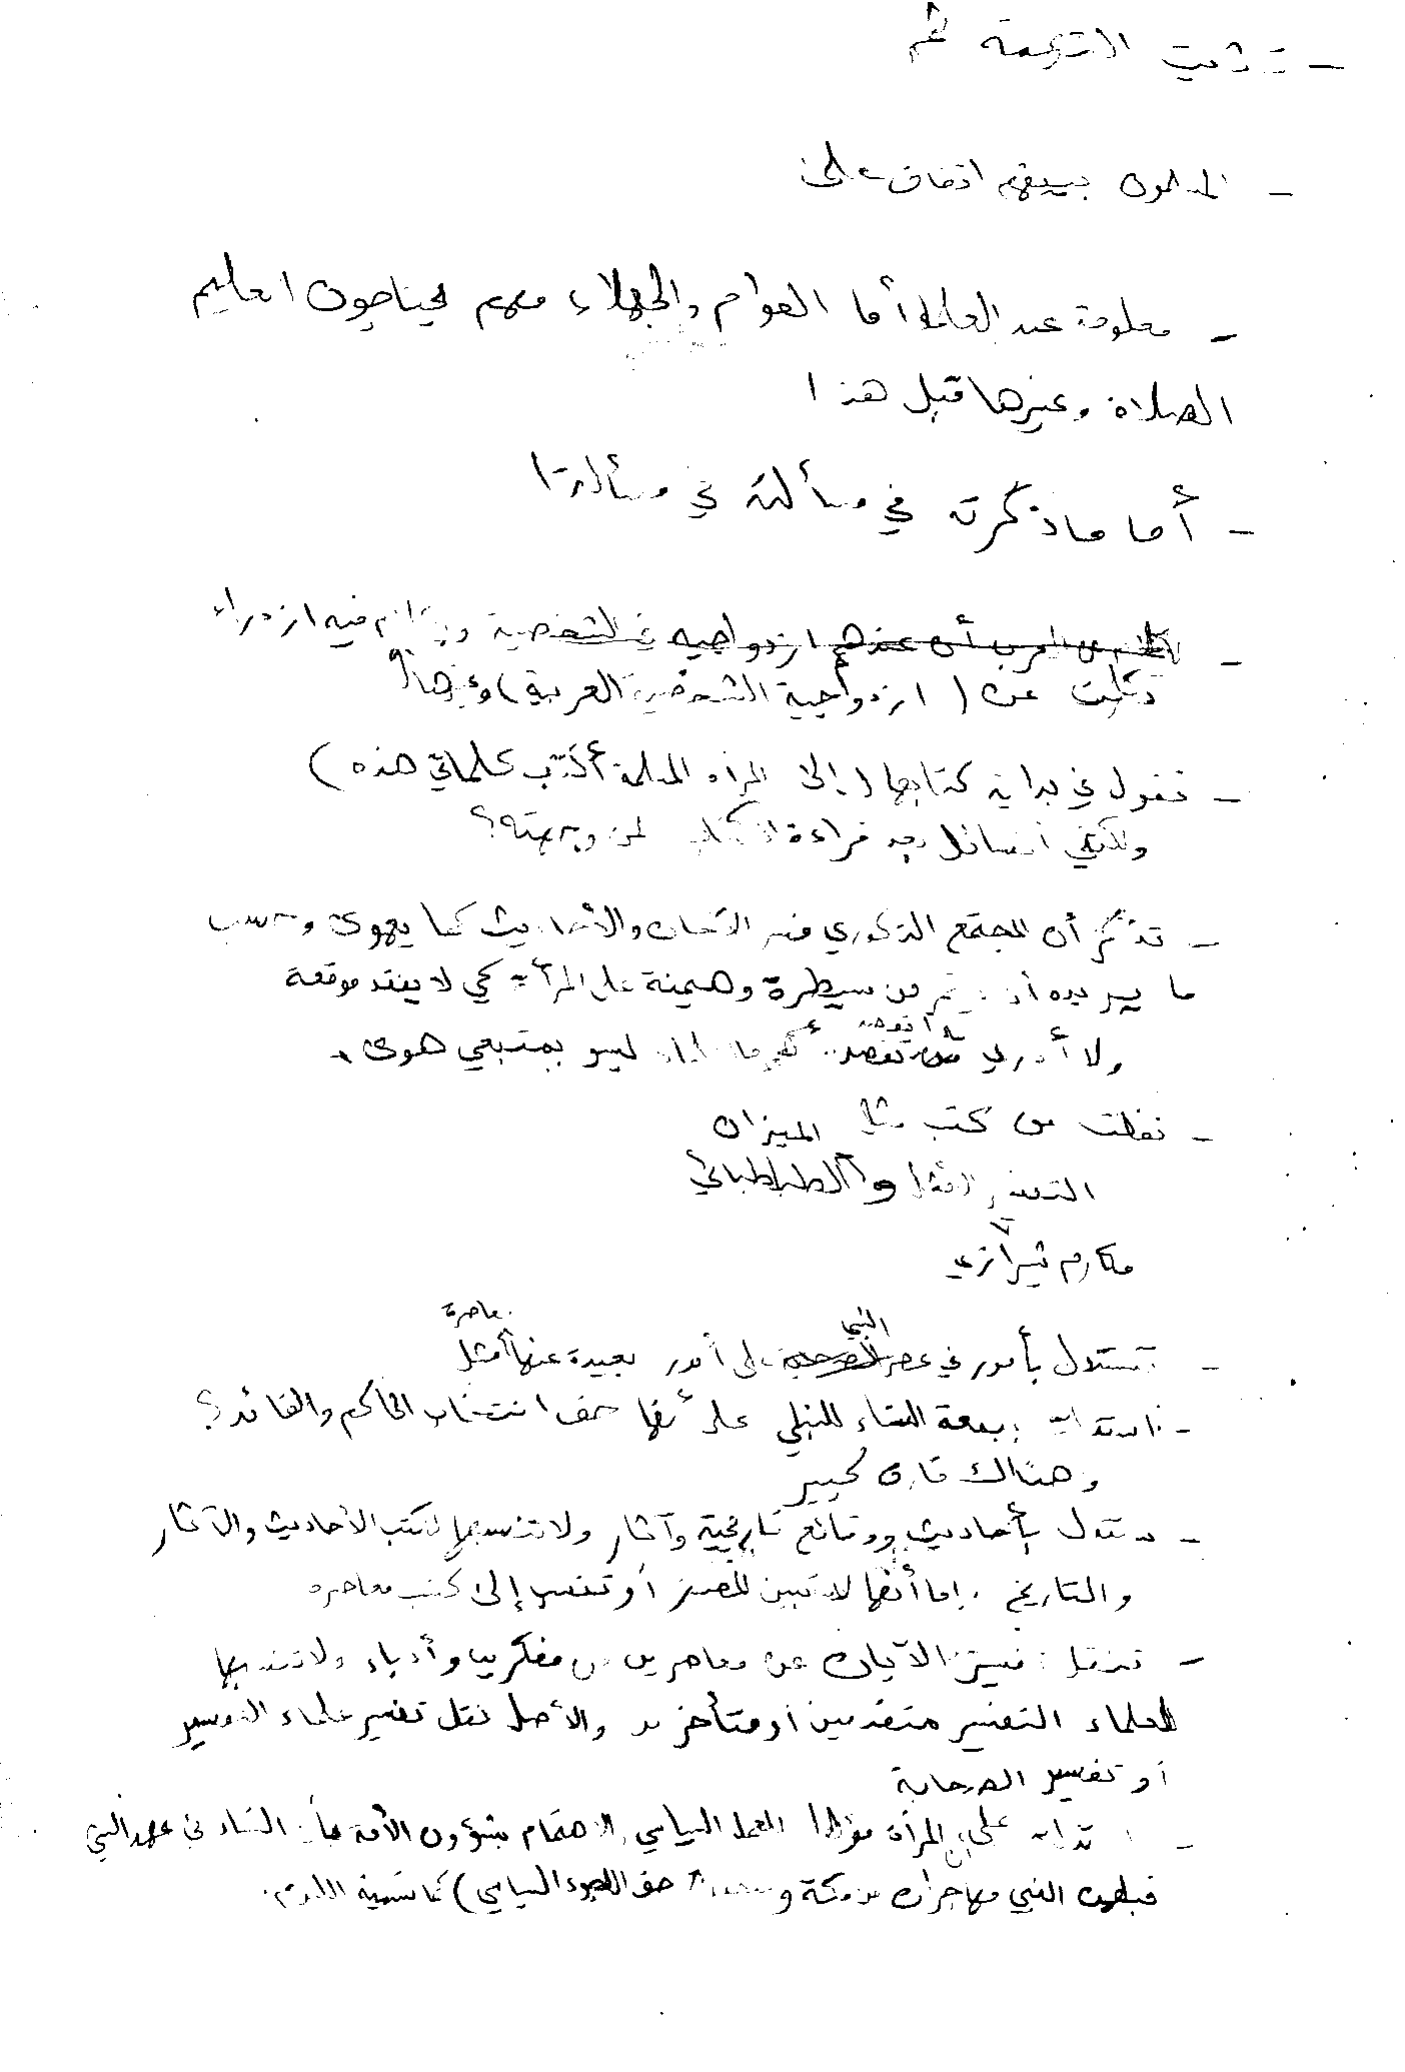 - الترجمة ثم
- المسلمون بينهم اتفاق على
- معلومة عند العلماء أما العوام والجهلاء فهم يحتاجون لتعليم
الصلاة وغيرها قبل هذا
- أما ما ذكرته في مسألته في مسألتنا
- أن عندهم ازدواجية في الشخصية فيه ازدراء
تكلمت عن (ازدواجية الشخصية العربية) وغيرها
- تقول في بداية كتابها (إلى المرأة المسلمة أكتب كلماتي هذه)
ولكنني أتساءل بعد قراءة الكتاب لمن وجهته؟
- تذكر أن المجتمع الذكوري فسر الآيات والأحاديث كما يهوى وحسب
ما يريده من سيطرة وهيمنة على المرأة كي لا يفقد موقعه
ولا أدري من تقصد ليسو بمتبعي هوى.
- نقلت من كتب مثل الميزان
التفسير الأمثل والطباطبائي
مكارم شيرازي
معاصرة
النبي
- تستدل بأمور في عصر على أمور بعيدة عنها مثل
- بيعة النساء للنبي على أنها حق انتخاب الحاكم والقائد؟
وهناك فارق كبير
- تستدل بأحاديث ووقائع تاريخية وآثار ولا تنسبها لكتب الأحاديث والآثار
والتاريخ. إما أنها لا تبين المصدر أو تنسب إلى كتب معاصرة
- تنقل تفسير الآيات عن معاصرين من مفكرين وأدباء ولا تنسبها
لعلماء التفسير متقدمين أو متأخرين والأصل نقل تفسير علماء التفسير
أو تفسير الصحابة
- على أن المرأة العمل السياسي الاهتمام بشؤون الأمة النساء في عهد النبي
النبي مهاجرات من مكة حق اللجوء السياسي) كما تسميه